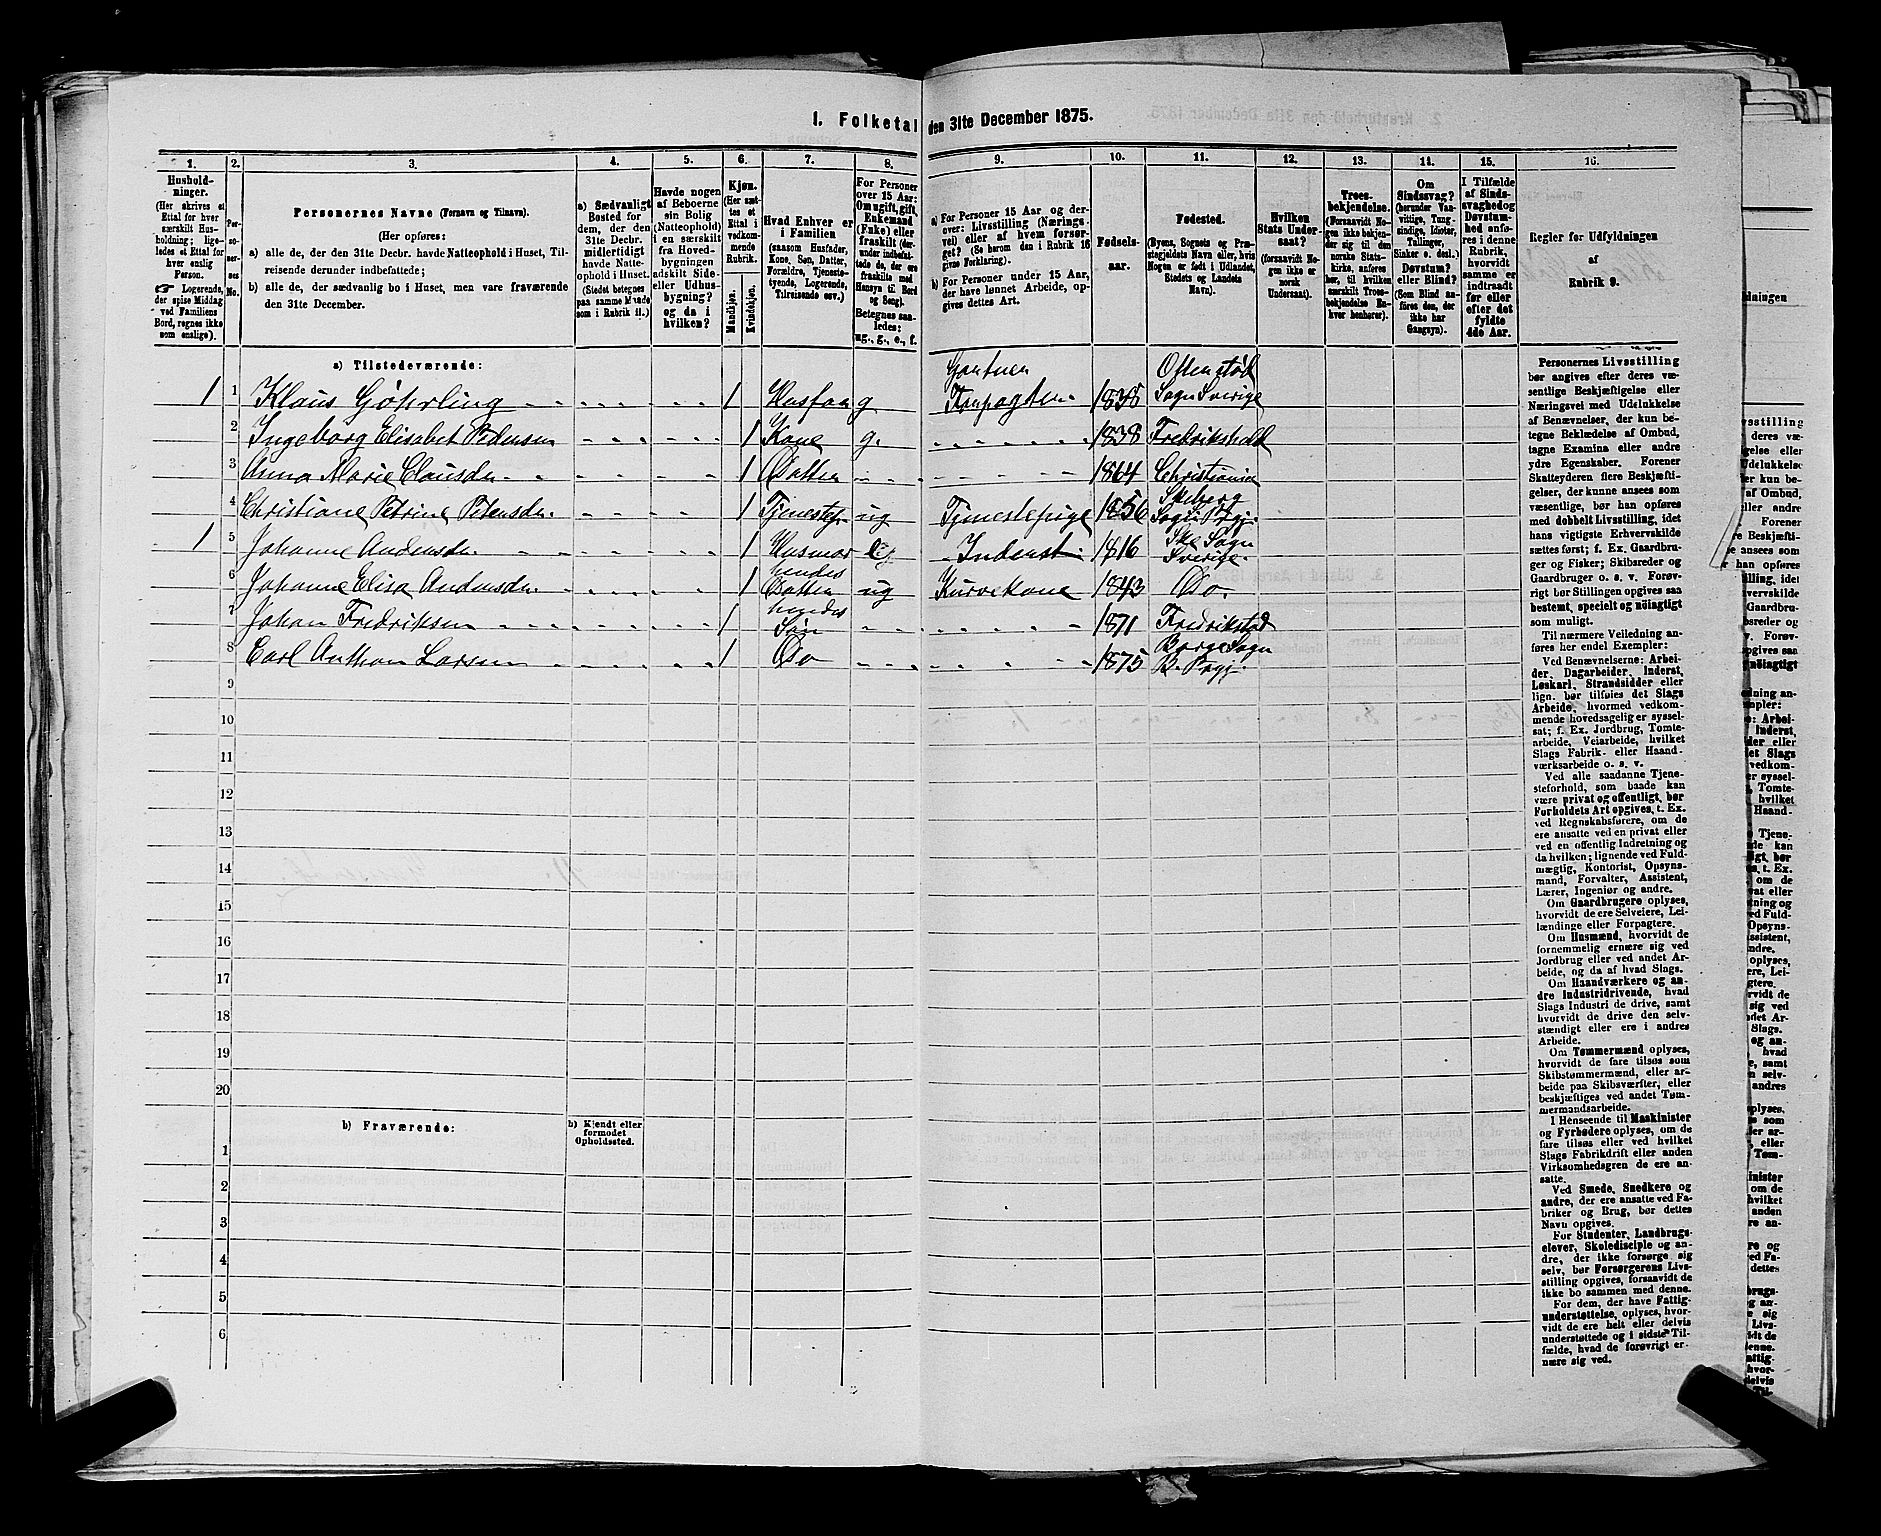 1. Folketal den 31te December 1875.
1. 2. 3. 4. 5. 6. 7. 8. 9. 10. 11. 12. 13. 14. 15. 16.
Hushold-
ninger.
(Her skrives et
Ettal for hver
særskilt Hus-
holdning; lige-
ledes et Ettal for
hver enslig
Person.
☞ Logerende,
der spise Middag
ved Familiens
Bord, regnes ikke
som enslige).
Per-
so-
ner-
nes
No.
Personernes Navne (Fornavn og Tilnavn).
(Her opføres:
a) alle de, der den 31te Decbr. havde Natteophold i Huset, Til-
reisende derunder indbefattede;
b) alle de, der sædvanlig bo i Huset, men vare fraværende
den 31te December.
a) Sædvanligt
Bosted for
dem, der den
31te Decbr.
midlertidigt
havde Natte-
ophold i Huset.
(Stedet betegnes
paa samme Maade
som i Rubrik 11.)
Havde nogen
af Beboerne
sin Bolig
(Natteophold)
i en særskilt
fra Hoved-
bygningen
adskilt Side-
eller Udhus-
bygning?
og da i
hvilken?
Kjøn.
(Her sæt-
tes et
Ettal i
vedkom-
mende
Rubrik.
Mandkjøn.
Kvindekjøn.
Hvad Enhver er
i Familien
(saasom Husfader,
Kone, Søn, Datter,
Forældre, Tjeneste-
tyende, Logerende,
Tilreisende osv.)
For Personer
over 15 Aar:
Om ugift, gift,
Enkemand
(Enke) eller
fraskilt (der-
under indbefat-
tede de, der ere
fraskilte med
Hensyn til Bord
og Seng).
Betegnes saa-
ledes:
ug., g., e., f.
a) For Personer 15 Aar og der-
over: Livsstilling (Nærings-
vei) eller af hvem forsør-
get? (Se herom den i Rubrik 16
givne Forklaring).
b) For Personer under 15 Aar,
der have lønnet Arbeide, op-
gives dettes Art.
Fødsels-
aar.
Fødested.
(Byens, Sognets og Præ-
stegjeldets Navn eller, hvis
Nogen er født i Udlandet,
Stedets og Landets
Navn).
Hvilken
Stats Under-
saat?
(forsaavidt No-
gen ikke er
norsk
Undersaat).
Troes-
bekjendelse.
(Forsaavidt No-
gen ikke bekjen-
der sig til den
norske Stats-
kirke, anføres
her, til hvilken
særskilt Troes-
bekjendelse En-
hver henhører).
Om
Sindssvag?
(herunder Van-
vittige, Tung-
sindige, Idioter,
Tullinger,
Sinker o. desl.)
Døvstum?
eller Blind?
(Som Blind an-
føres den, der
ikke har
Gangsyn).
I Tilfælde
af Sinds-
svaghed og
Døvstum-
hed anfø-
res i denne
Rubrik,
hvorvidt
samme er
indtraadt
før eller
efter det
fyldte
4de Aar.
Regler for Udfyldningen
af
Rubrik 9.
a) Tilstedeværende:
1 1 Klaus Göhrling 1 Husfa g Gartner Forpagter 1838 Sogn Sverige
2 Ingeborg Elisabet Pedersen 1 Kone g. 1838 Fredrikshald
3 Anna Marie Clausdr. 1 Datter 1864 Christiania
4 Christiane Petrine Petersdr. 1 Tjenestep. ug Tjenestepige 1856 Skeberg Sogn Prgj.
1 5 Johanne Andersdr. 1 Husmor Inderst. 1816 Ske Sogn Sverige.
6 Johanne Elise Andersdr. 1 hendes Datter ug Kurvekone 1843 Do.
7 Johan Fredriksen 1 hendes Søn 1871 Fredrikstad
8 Carl Anthon Larsen 1 Do 1875 Borge Sogn B. Prgj.
9
10
11
12
13
14
15
16
17
18
19
20
b) Fraværende:
b) Kjendt eller
formodet
Opholdssted.
1
2
3
4
5
6
Personernes Livsstilling
bør angives efter deres væ-
sentlige Beskjæftigelse eller
Næringsvei med Udelukkelse
af Benævnelser, der kun be-
tegne Beklædelse af Ombud,
tagne Examina eller andre
ydre Egenskaber. Forener
Skatteyderen flere Beskjæfti-
gelser, der kunne ansees som
væsentlige, bør han opføres
med dobbelt Livsstilling, idet
hans vigtigste Erhvervskilde
sættes først; f. Ex. Gaardbru-
ger og Fisker; Skibsreder og
Gaardbruger o. s. v. Forøv-
rigt bør Stillingen opgives saa
bestemt, specielt og nöiagtigt
som muligt.
Til nærmere Veiledning an-
føres her endel Exempler:
Ved Benævnelserne: Arbei-
der, Dagarbeider, Inderst,
Løskarl, Strandsidder eller
lign. bør tilføies det Slags
Arbeide, hvormed vedkom-
mende hovedsagelig er syssel-
sat; f. Ex. Jordbrug, Tomte-
arbeide, Veiarbeide, hvilket
Slags Fabrik- eller Haand-
værksarbeide o. s. v.
Ved alle saadanne Tjene-
steforhold, som baade kan
være privat og offentligt, bør
Forholdets Art opgives, t. Ex.
ved Regnskabsførere, om de
ere ansatte ved en privat eller
ved en offentlig Indretning og
da hvilken; lignende ved Fuld-
mægtig, Kontorist, Opsyns-
mand, Forvalter, Assistent,
Lærer, Ingeniør og andre.
Om Gaardbrugere oplyses,
hvorvidt de ere Selveiere, Lei-
lændinge eller Forpagtere.
Om Husmænd, hvorvidt de
fornemmelig ernære sig ved
Jordbrug eller ved andet Ar-
beide, og da af hvad Slags.
Om Haandværkere og an-
dre Industridrivende, hvad
Slags Industri de drive, samt
hvorvidt de drive den selv-
stændigt eller ere i andres
Arbeide.
Om Tømmermænd oplyses,
hvorvidt de fare tilsøs som
Skibstømmermænd, eller ar-
beide paa Skibsværfter, eller
beskjæftiges ved andet Tøm-
mermandsarbeide.
I Henseende til Maskinister
og Fyrbødere oplyses, om de
fare tilsøs eller ved hvilket
Slags Fabrikdrift eller anden
Virksomhedsgren de ere an-
satte.
Ved Smede, Snedkere og
andre, der ere ansatte ved Fa-
briker og Brug, bør dettes
Navn opgives.
For Studenter, Landbrugs-
elever, Skoledisciple og an-
dre, der ikke forsørge sig
selv, bør Forsørgerens Livs-
stilling opgives, forsaavidt de
ikke bo sammen med denne.
For dem, der have Fattig-
understøttelse, oplyses, hvor-
vidt de ere helt eller delvis
understøttede og i sidste Til-
fælde, hvad de forøvrigt er-
nære sig ved.